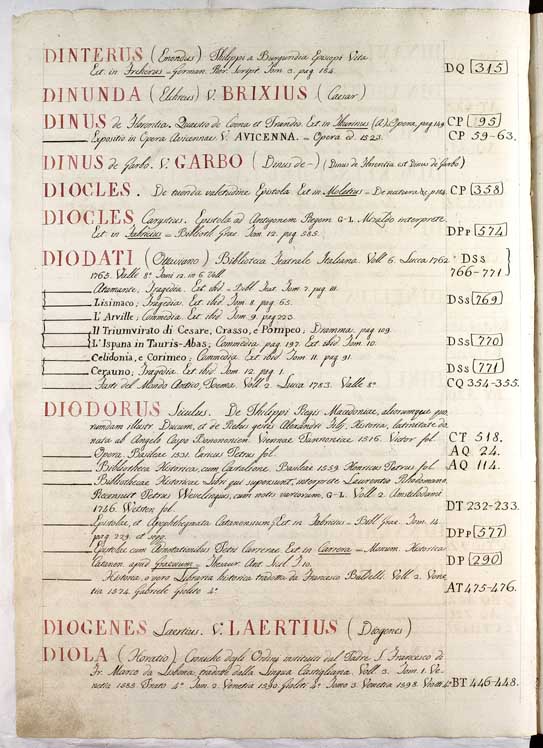 DINTERUS (Enondus) Philippi a Burgundia Episcopi Vita
Est. in Freherus = German. Rer. Script. Tom. 3. pag. 184. DQ 315
DINUNDA (Elibreus) V. BRIXIUS (Caesar)
DINUS de Florentia. Quaestio de Coena et Prandio. Est in Thurinus (A) Opera, pag. 149 CP 95
Expositio in Opera Avicennae. V. AVICENNA. = Opera ed. 1523. CP 59-63.
DINUS de Garbo. V. GARBO (Dinus de-) (Dinus de Florentia est Dinus de Garbo)
DIOCLES. De tuenda valetudine Epistola. Est in Moletius = De natura &c. p. CP 358
DIOCLES Carystius. Epistola ad Antigonum Regem G-L. Mizaldo interprete
Est in Fabricius = Biblioth. Grae. Tom. 12. pag 585. DPp 574
DIODATI (Ottaviano) Biblioteca Teatrale Italiana. Voll. 6. Lucca 1762 DSS
1765. Della Valle 8º Tomi 12. in 6 Voll 766-771
Atamante; Tragedia. Est ibid. Tom. 7. pag. 111.
Lisimaco; Tragedia. Est ibid Tom 8. pag 65. DSS 769
L'Arville; Commedia Est ibid Tom 9. pag 223
Il Triumvirato di Cesare, Crasso, e Pompeo; Dramma. pag 109.
L'Ispana in Tauris-Abas; Commedia pag 197. Est ibid Tom. 10. DSS 770
Celidonia, e Corimeo; Commedia Est ibid Tom. 11. pag 91.
Cerauno; Tragedia. Est ibid Tom. 12. pag 1. DSS 771
Fasti del Mondo Antico. Poema. Voll. 2. Lucca 1783. Valle 8º CQ 354-355.
DIODORUS Siculus. De Philippi Regis Macedoniae, aliorumque quo
rumdam illustr. Ducum, et de Rebus gestis Alexandri filij, Historia, latinitate do
nata ab Angelo Cospo Bononiensi. Viennae Pannoniae 1516. Victor fol. CT 518.
Opera. Basileae 1531. Enricus Petrus fol. AQ 24.
Bibliotheca Historica, cum Castalione. Basileae 1559 Henricus Petrus fol. AQ 114.
Bibliothecae Historicae Libri qui supersunt, interprete Laurentio Rhodomano,
Recensuit Petrus Wesselingius, cum notis variorum, G-L. Voll. 2. Amstelodami
1746. Wetsten fol. DT 232-233.
Epistolae, et Apophthegmata Catanensium; Est in Fabricius = Bibl. Grae. Tom. 14.
pag 229. et seqq. DPp 577
Epistolae cum Adnotationibus Petri Carrerae. Est in Carrera = Monum. Historica
Catanen. apud Graevium = Thesaur. Ant. Sicil. T. 10. DP 290
Historia, o vero Libraria historica tradotta da Francesco Baldelli. Voll. 2. Vene
tia 1574. Gabriele Giolito 4º AT 475-476.
DIOGENES Laertius. V. LAERTIUS (Diogenes)
DIOLA (Horatio) Croniche degli Ordini instituiti dal Padre S. Francesco di
Fr. Marco da Lisbona, tradotte dalla Lingua Castigliana. Voll. 3. Tom. 1. Ve-
netia 1585. 4º Tom. 2. Venetia 1590. Gioliti 4º Tomo 3. Venetia 1598. 4º BT 446-448.